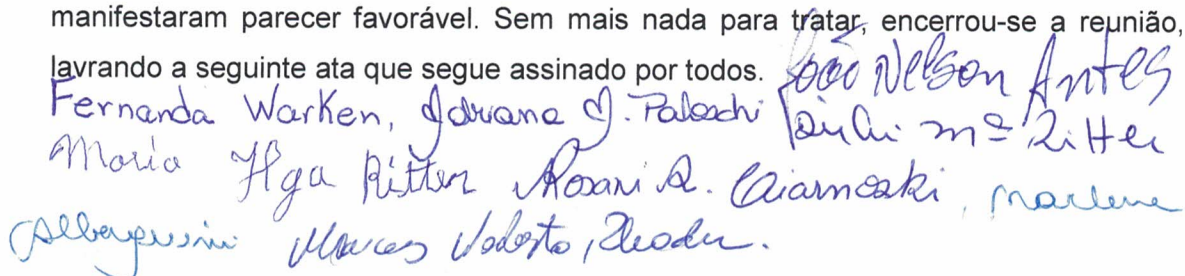 manifestaram parecer favorável. Sem mais nada para tratar, encerrou-se a reunião,
lavrando a seguinte ata que segue assinado por todos. João Nelson Antes
Fernanda Warken, Adriana J. Paloschi Mª Ritter
Maria Ilga Ritter Rosani R. Marlene
Marcos